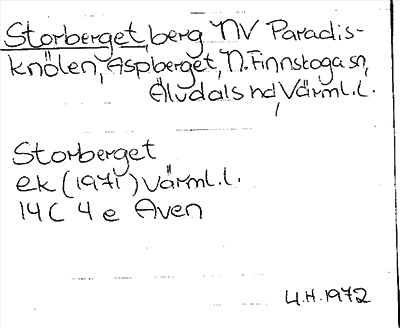 Storberget, berg NV Paradis-
knölen, Aspberget, N. Finnskoga sn,
Älvdals hd, Värml. l.
Storberget
ek (1971) Värml. l.
14 C 4 e Aven
L.H. 1972